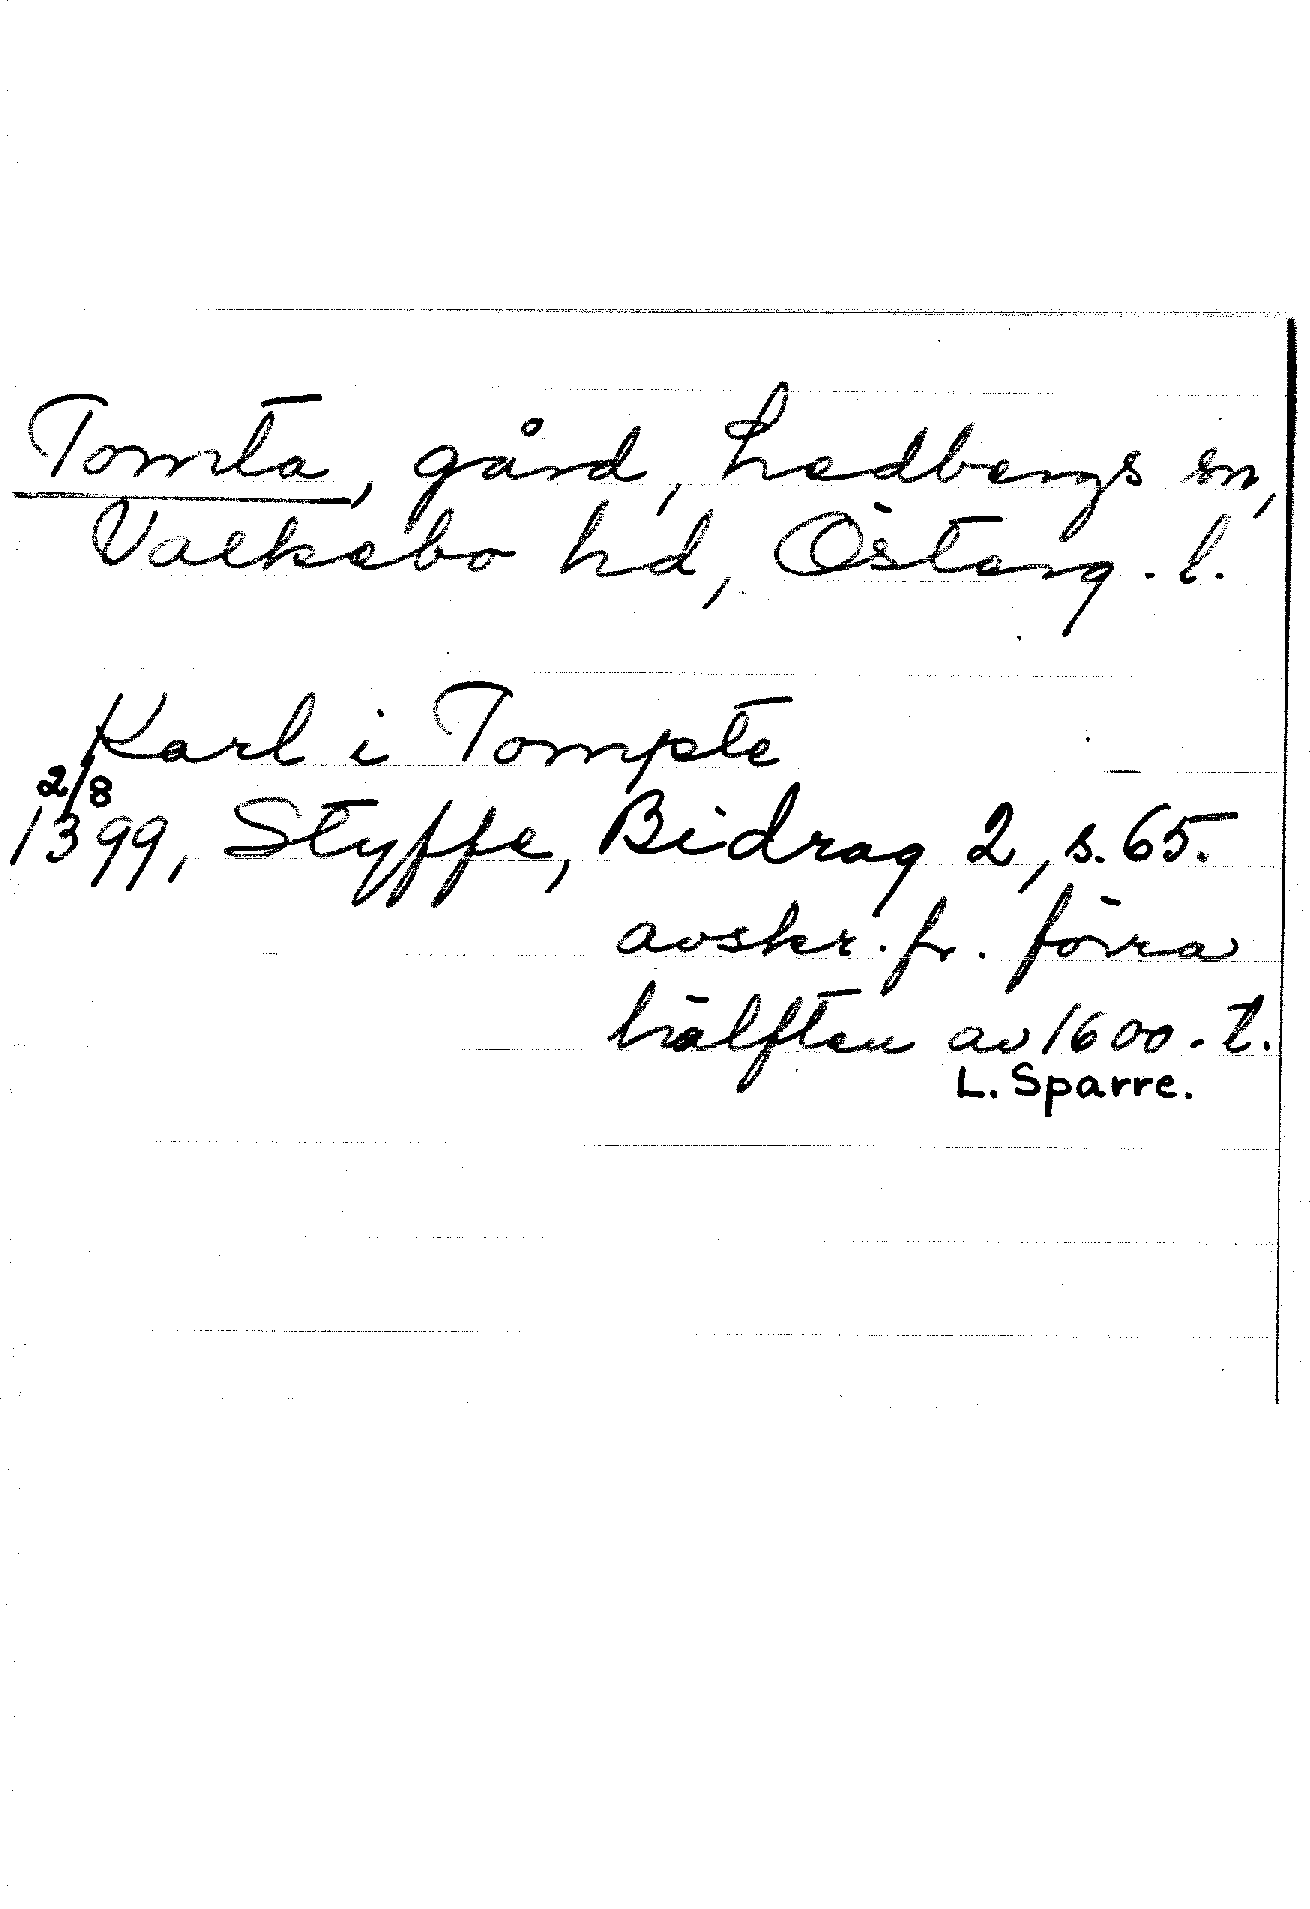 Tomta, gård, Ledbergs sn,
Valkebo hd, Österg. l.
Karl i Tompte
2/8
1399, Styffe, Bidrag 2, s. 65.
avskr. fr. förra
hälften av 1600-t.
L. Sparre.